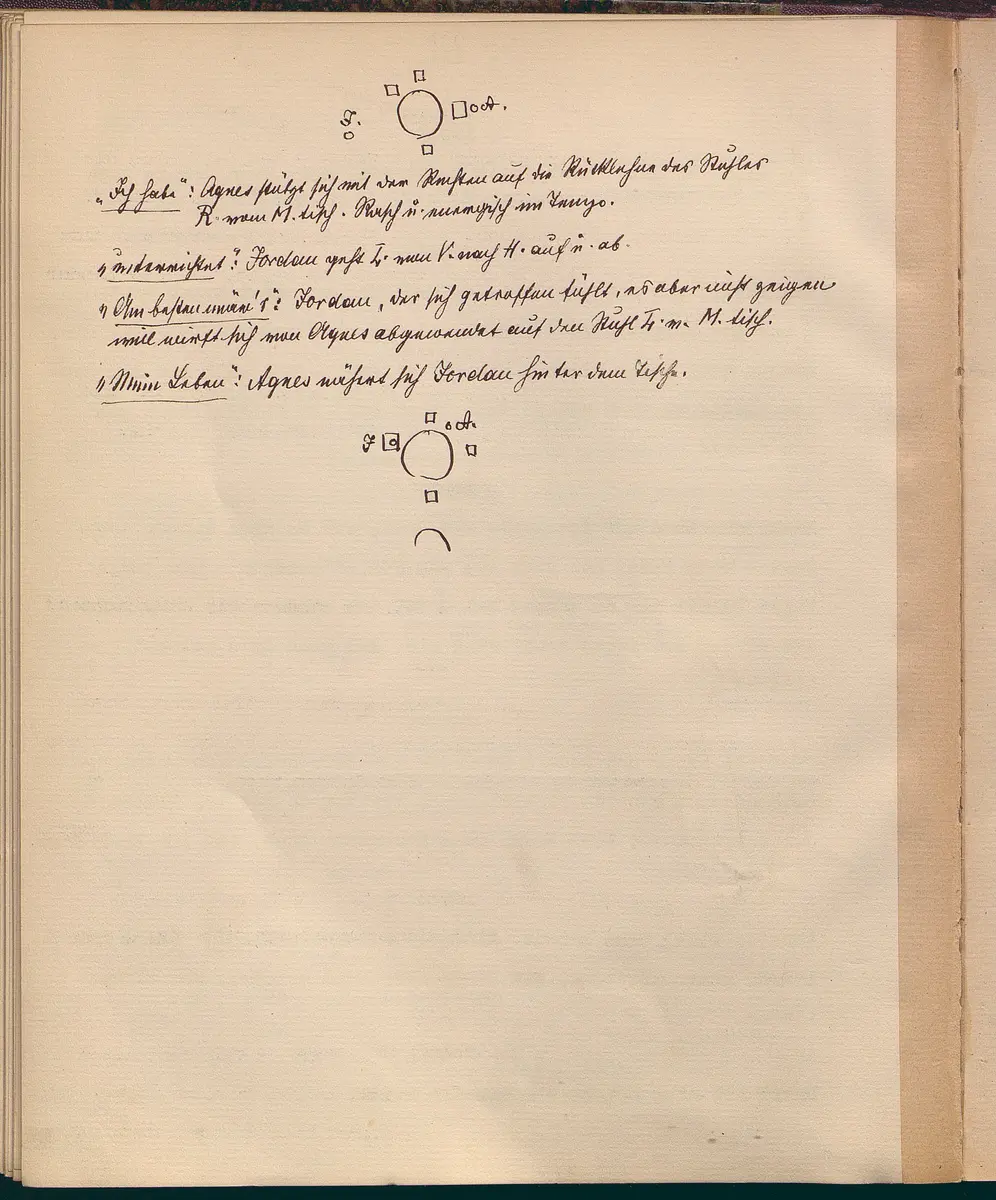 A.
J.
„Ich habe": Agnes stützt sich mit der Rechten auf die Rücklehne des Stuhles
R. vom M. tisch. Rasch u. energisch im Tempo.
„unterrichtet": Jordan geht L. von V. nach H. auf u. ab.
„Am besten wär's": Jordan, der sich getroffen fühlt, es aber nicht zeigen
will wirft sich von Agnes abgewendet auf den Stuhl L. v. M. tisch.
„Mein Leben": Agnes nähert sich Jordan hinter dem Tische.
A.
J